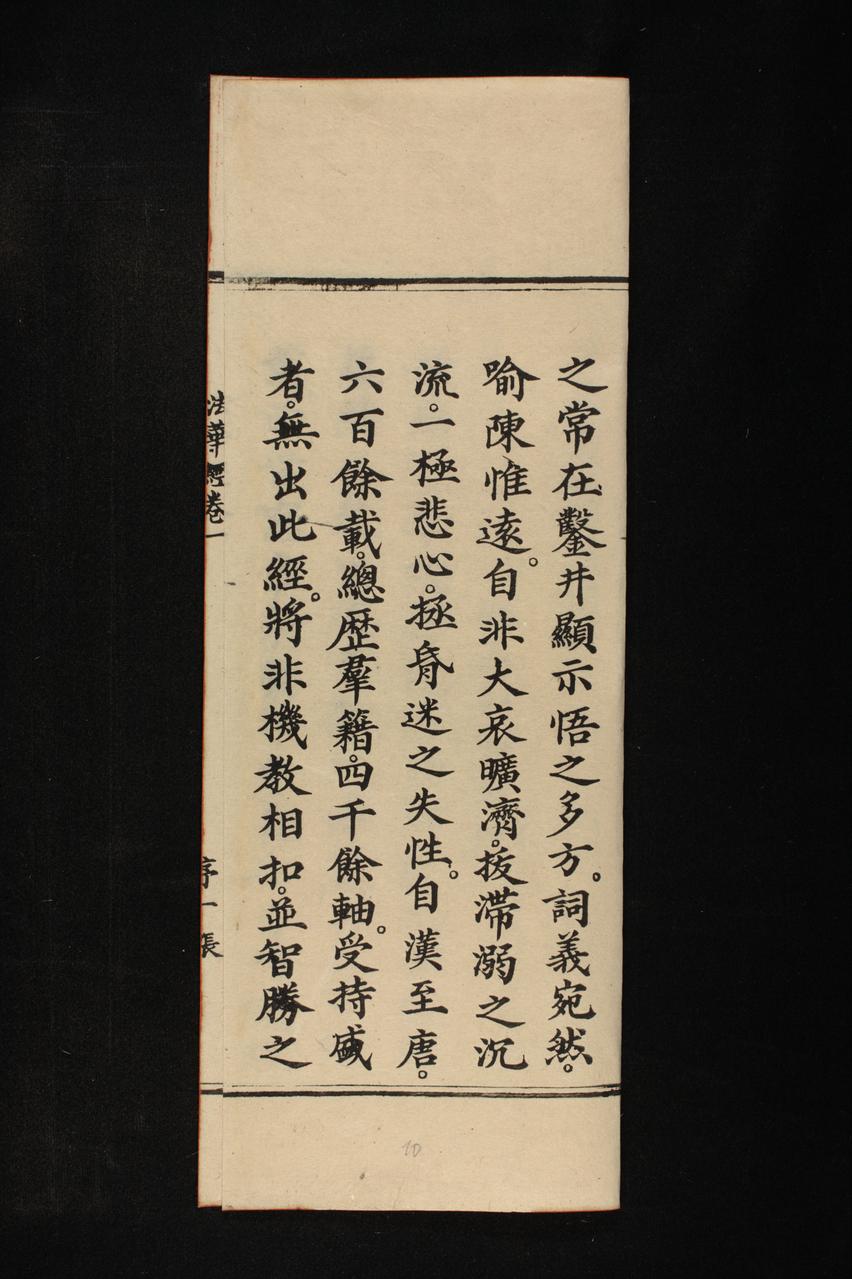 之常在鑿井顯示悟之多方。詞義宛然。
喻陳惟遠。自非大哀曠濟。拔滯溺之沉
流。一極悲心。拯昏迷之失性。自漢至唐。
六百餘載。總歷羣籍。四千餘軸。受持盛
者。無出此經。將非機教相扣。並智勝之
法華經卷一
序一張
10